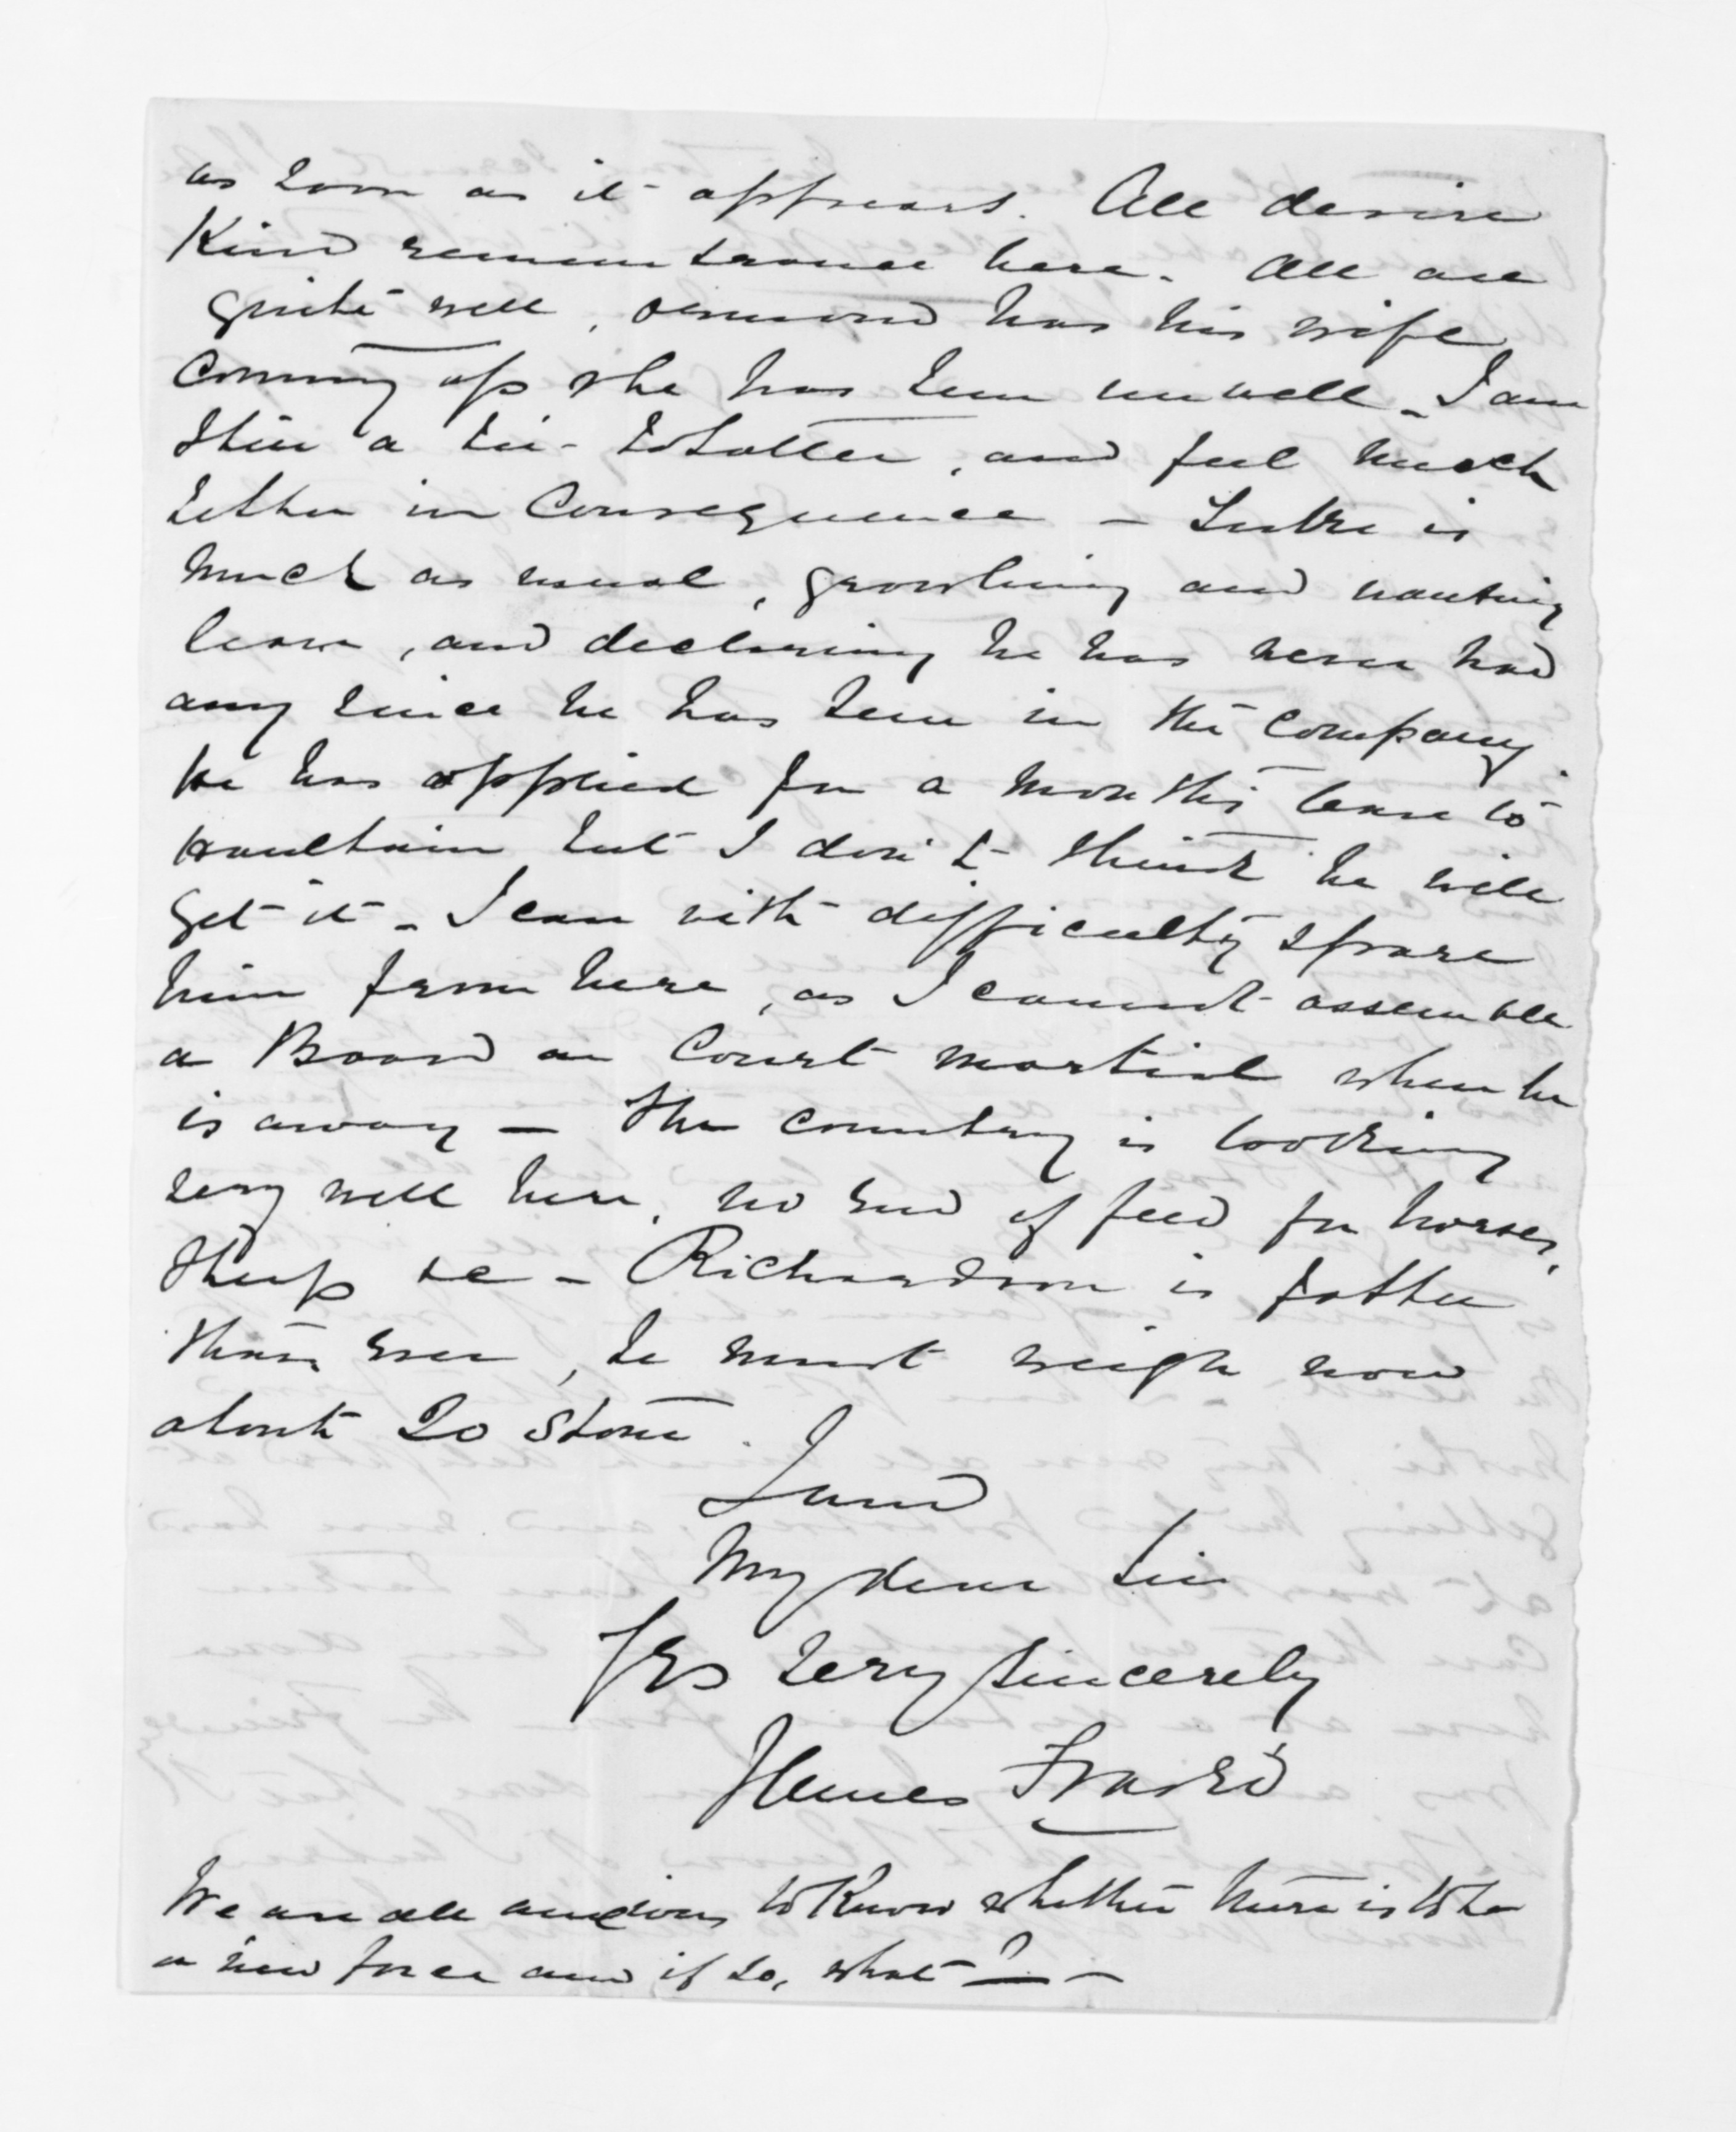 as soon as it appears. All desire
Kind remembrance here. All are
quite well, Ormond has his wife
coming up she has been unwell - I am
Still a tee-totaller, and feel much
better in Consequence - is
much as usual, growling and wanting
leave, and declaring he has never had
any since he has been in the Company.
He has applied for a months leave to
but I don't think he will
get it - I can with difficulty spare
him from here, as I cannot assemble
a Board or Court martial when he
is away - The country is looking
very well here, no end of feed for horses,
Sheep &c - Richardson is fatter
than ever, he must weigh now
about 20 Stone.
I am
My dear Sir
Yrs very sincerely
James Fraser
We are all anxious to Know whether there is to be
a new force and if so, what? -